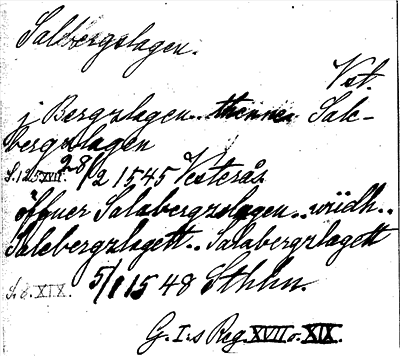 Salbergslagen.
Vst.
j Bergzlagen.. thenne Sale-
bergzlagen
S. 125 XVII. 28/2 1545 Vesterås
öffuer Salabergzslagen.. widh..
Salebergzlagett.. Salabergzlagett
S. 8. XIX. 5/1 1548 Sthlm.
G. I:s Reg. XVII o. XIX.